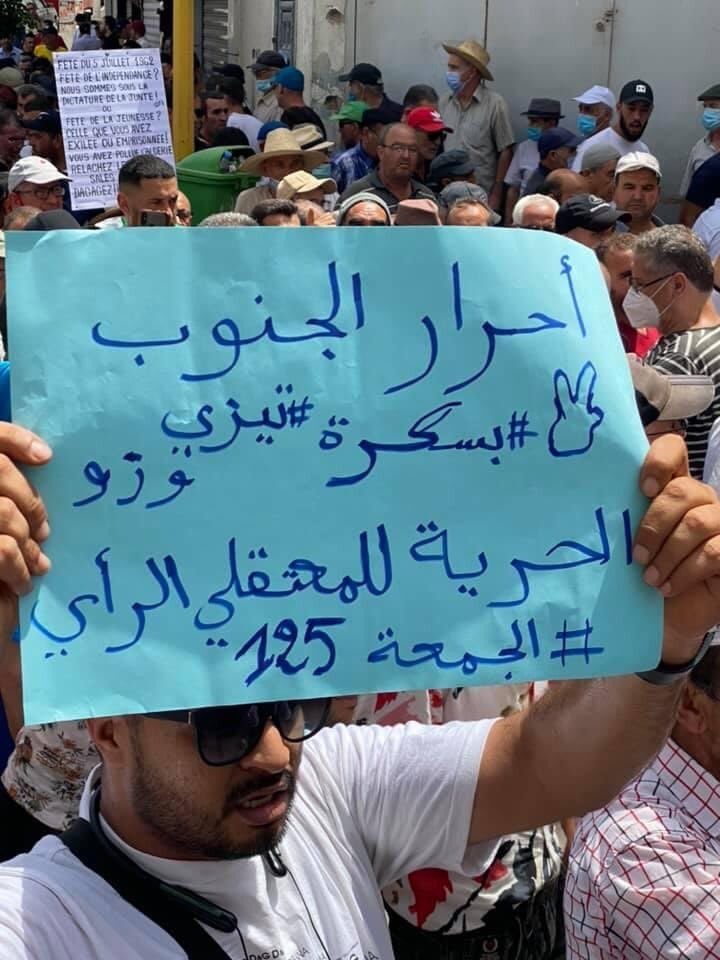 FETE DU 5 JUILLET 1962
FETE DE L'INDEPENDANCE?
NOUS SOMMES SOUS LA
DICTATURE DE LA JUNTE!
OU
FETE DE LA JEUNESSE?
CELLE QUE VOUS AVEZ
EXILEE OU EMPRISONNEE
VOUS AVEZ POLLUE
RELACHEZ
أحرار الجنوب
#بسكرة #تيزي
وزو
الحرية للمعتقلي الرأي
#الجمعة 125
D&G D&G